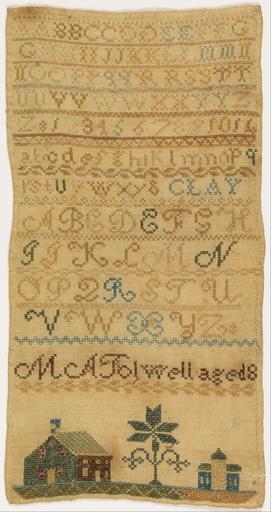 BBCCDDEE G
G JJKKLL MMII
OOPPQQRRSSTT
UUVVWWXXYYZ
abcdefghiklmnopq
rstuvwxyz CLAY
ABCDEFGH
IJKLMN
OPQRSTU
VWXYZ
M A Folwell aged 8